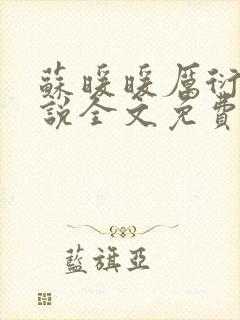 蘇暖暖厲衍
說全文免費
藍旗亞